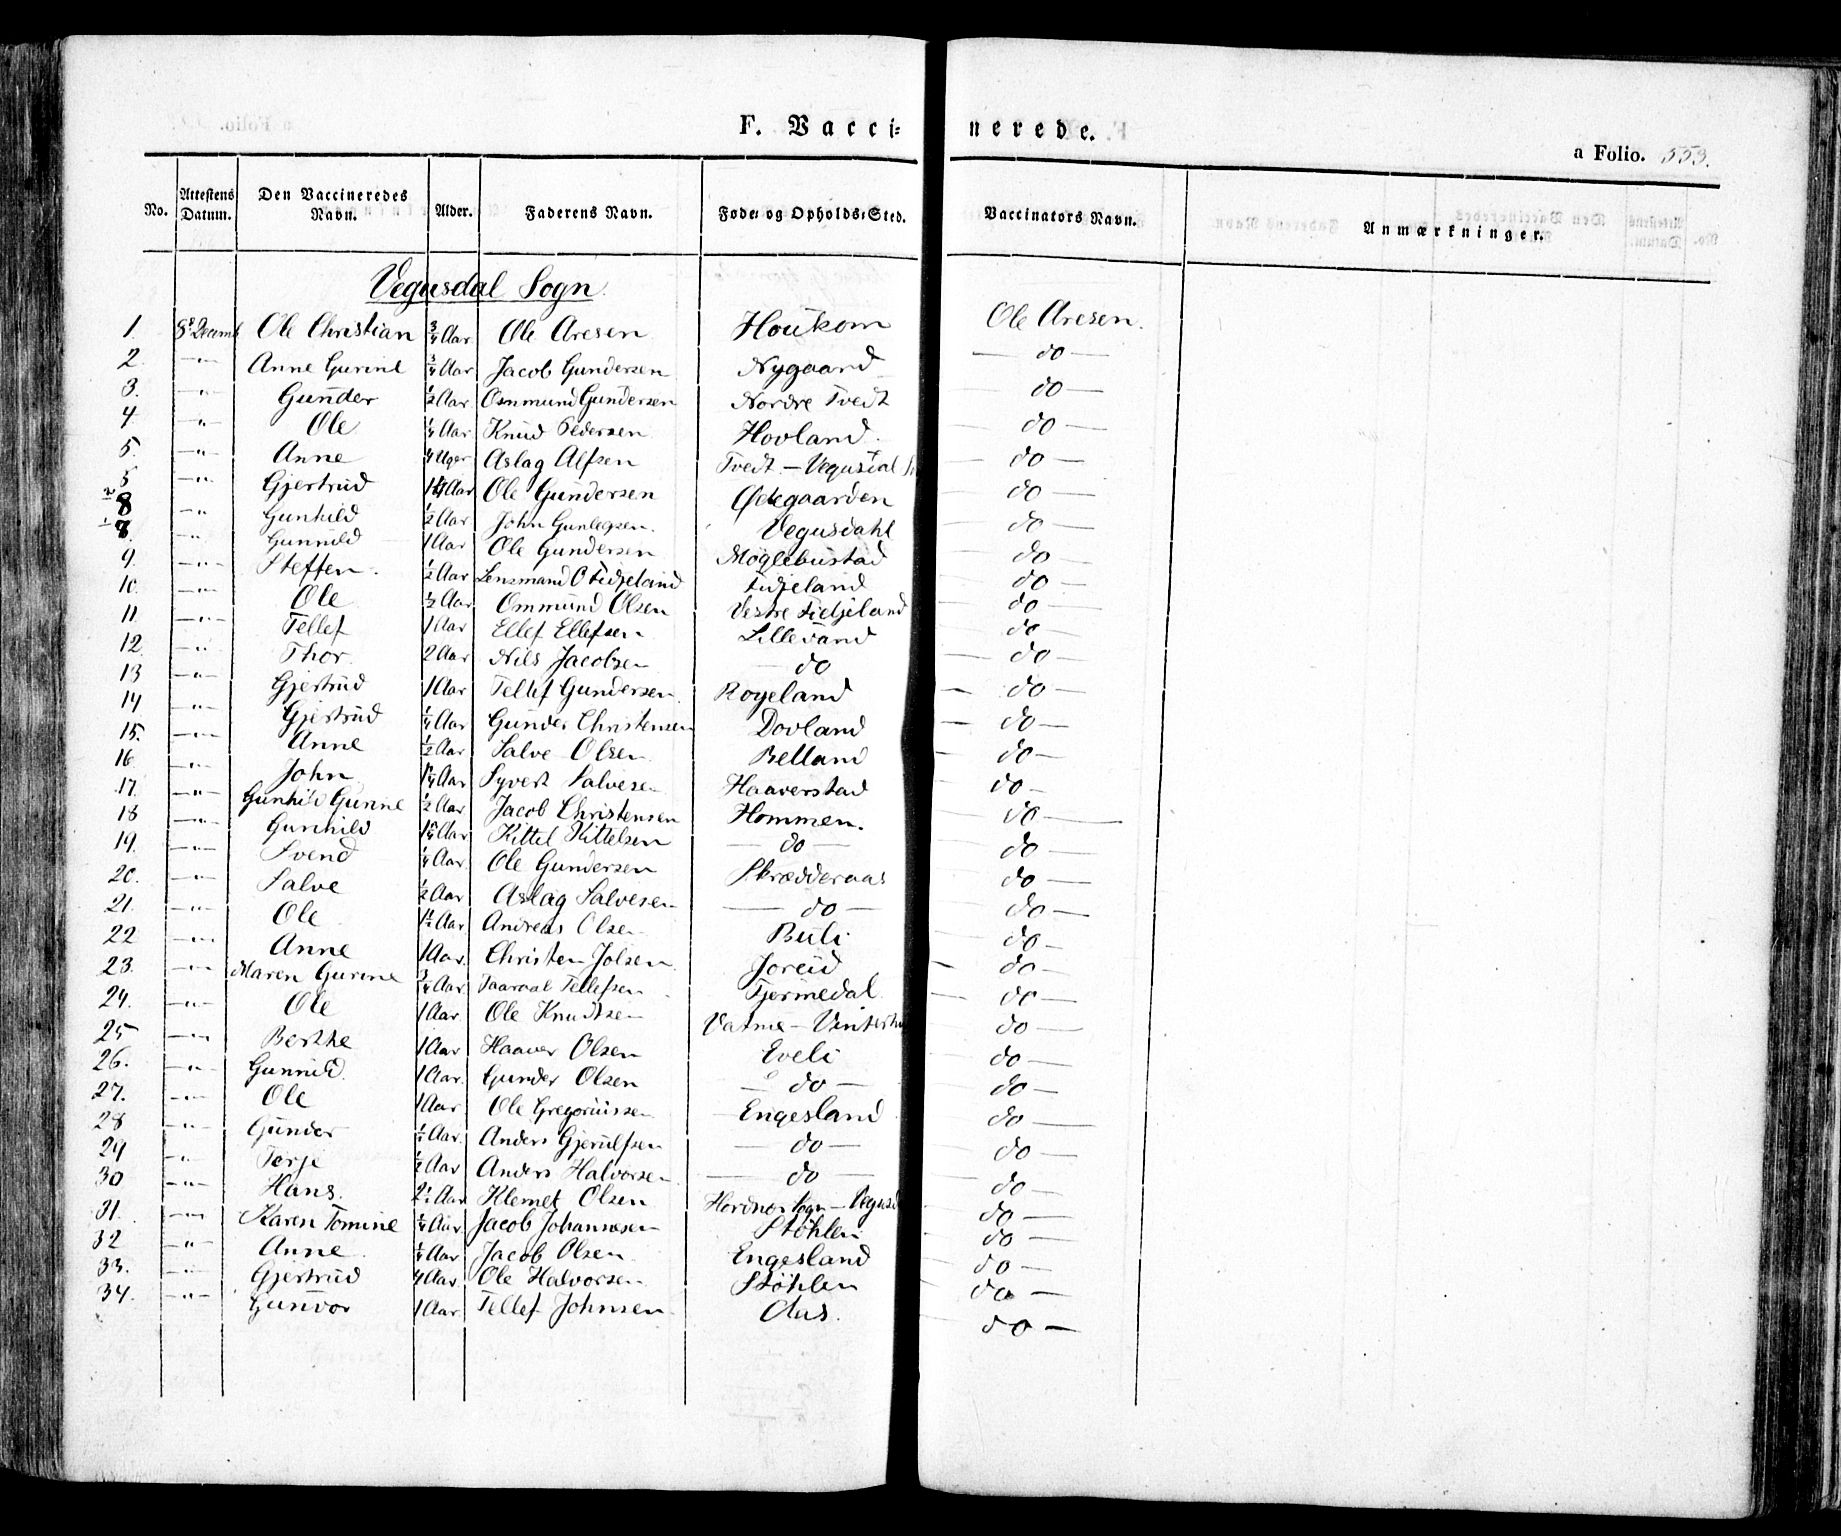 F. Vacci-nerede.
a Folio. 553.
No. Attestens Datum. Den Vaccineredes Navn. Alder. Faderens Navn. Føde- og Opholds-Sted. Vaccinators Navn. Anmærkninger.
Vegusdal Sogn.
1. 8de Decemb Ole Christian 3/4 Aar Ole Aresen Houkom Ole Aresen.
2. —"— Anne Gurine 3/4 Aar Jacob Gundersen Nygaard — do —
3. —"— Gunder 1/2 Aar Osmund Gundersen Nordre Tvedt — do —
4 —"— Ole 1/4 Aar Knud Pedersen Hovland. — do —
5. —"— Anne 4 Uger Aslag Alfsen Tvedt — Vegusdal — do —
5 —"— Gjertrud 1 1/4 Aar Ole Gundersen Ødegaarden — do —
8 —"— Gunhild 1/2 Aar John Gunlegsen. Vegusdahl — do —
8. —"— Gunnild 1 Aar Ole Gundersen Møglebustad — do —
9. —"— Steffen. 1/2 Aar Lensmand O Fidjeland Fidjeland — do —
10. —"— Ole 1/2 Aar Ommund Olsen Vestre Fidjeland — do —
11. —"— Tellef 1 Aar Ellef Ellefsen Lillevand — do —
12. —"— Thor. 2 Aar Nils Jacobsen — do — — do —
13 —"— Gjertrud 1 Aar Tellef Gundersen Rogeland — do —
14 —"— Gjertrud 1/4 Aar Gunder Christensen Dovland — do —
15. —"— Anne 1/2 Aar Salve Olsen Belland — do —
16 —"— John Aar Syvert Salvesen Haaverstad do —
17. —"— Gunhild Gurine 1/2 Aar Jacob Christensen Hommen. — do —
18 —"— Gunhild Aar Kittel Kittelsen — do — — do —
19. —"— Svend 1/4 Aar Ole Gundersen Skrædderaas — do —
20. —"— Salve 1/2 Aar Aslag Salvesen — do — — do —
21. —"— Ole 1 1/2 Aar Andreas Olsen Buli — do —
22 —"— Anne 1 Aar. Christen Jolsen Joreid — do —
23. —"— Maren Gurine 3/4 Aar. Taaraal Tellefsen Tjermedal — do —
24. —"— Ole 1 Aar Ole Knudsen Vatne — — do —
25 —"— Berthe 1 Aar Haaver Olsen Eveli — do —
26. —"— Gunnild. 1 Aar. Gunder Olsen — do — — do —
27. —"— Ole 1 Aar Ole Gregoriussen Engesland — do —
28 —"— Gunder Aar. Anders Gjerulfsen — do — — do —
29 —"— Terje 1/2 Aar Anders Halvorsen — do — — do —
30 —"— Hans. Aar Klemet Olsen Hordnes Sogn — — do —
31. —"— Karen Tomine Aar Jacob Johannesen Støhlen — do —
32 —"— Anne 1/4 Aar Jacob Olsen Engesland — do —
33. —"— Gjertrud 4 Aar Ole Halvorsen Støhlen — do —
34. —"— Gunvor 1 Aar Tellef Johnsen Aas. — do —